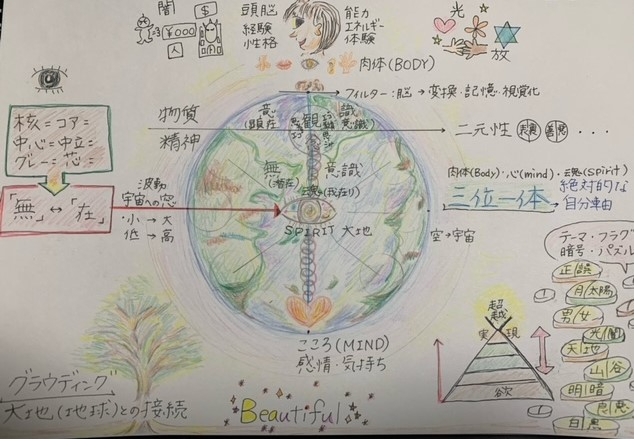 闇
$
¥000
人
頭脳
経験
性格
能力
エネルギー
体験
光
放
肉体(BODY)
フィルター:脳 → 変換・記憶・視覚化
核=コア=
中心=中立=
グレー=芯=
「無」↔「在」
物質
精神
意識
(顕在)
観
無意識
(潜在)
魂(我在り)
SPIRIT 大地
波動
宇宙への窓
・小 → 大
低 → 高
二元性 表裏 善悪 ・・・
肉体(Body)・心(mind)・魂(spirit)
三位一体
絶対的な
自分軸
空→宇宙
テーマ・フラグ
暗号・パズル
正|誤
月|太陽
男|女
光|闇
天|地
山|谷
明|暗
白|黒
超越
実現
欲
こころ(MIND)
感情・気持ち
グラウディング
大地(地球)との接続
Beautiful